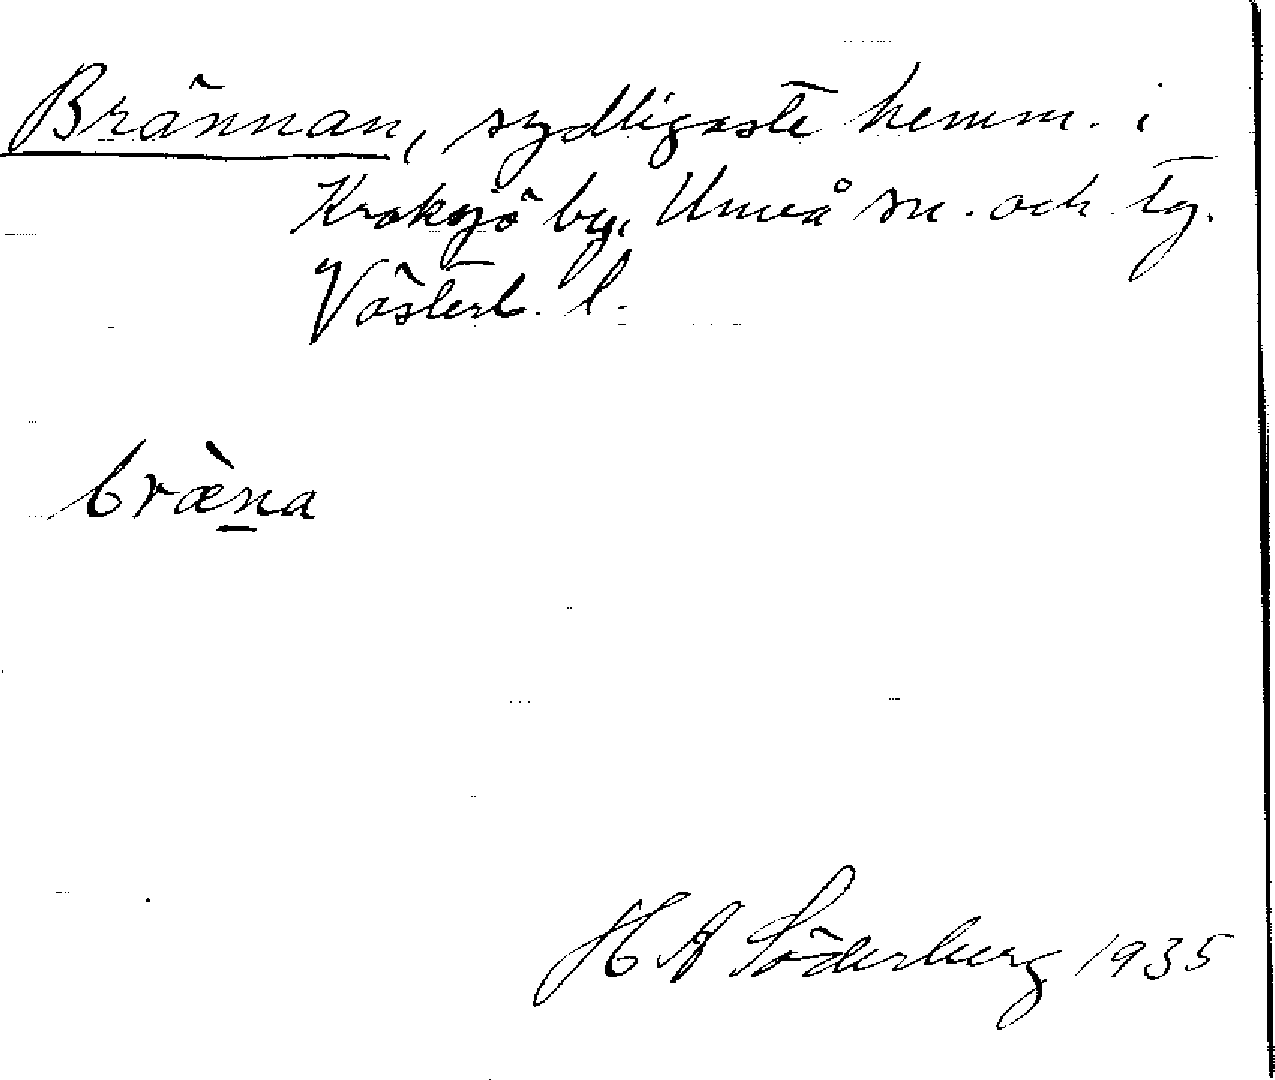 Brännan, sydligaste hemm. i
Kroksjö by, Umeå sn. och tg.
Västerb. l.
bræ̀n̲a
H A Söderberg 1935